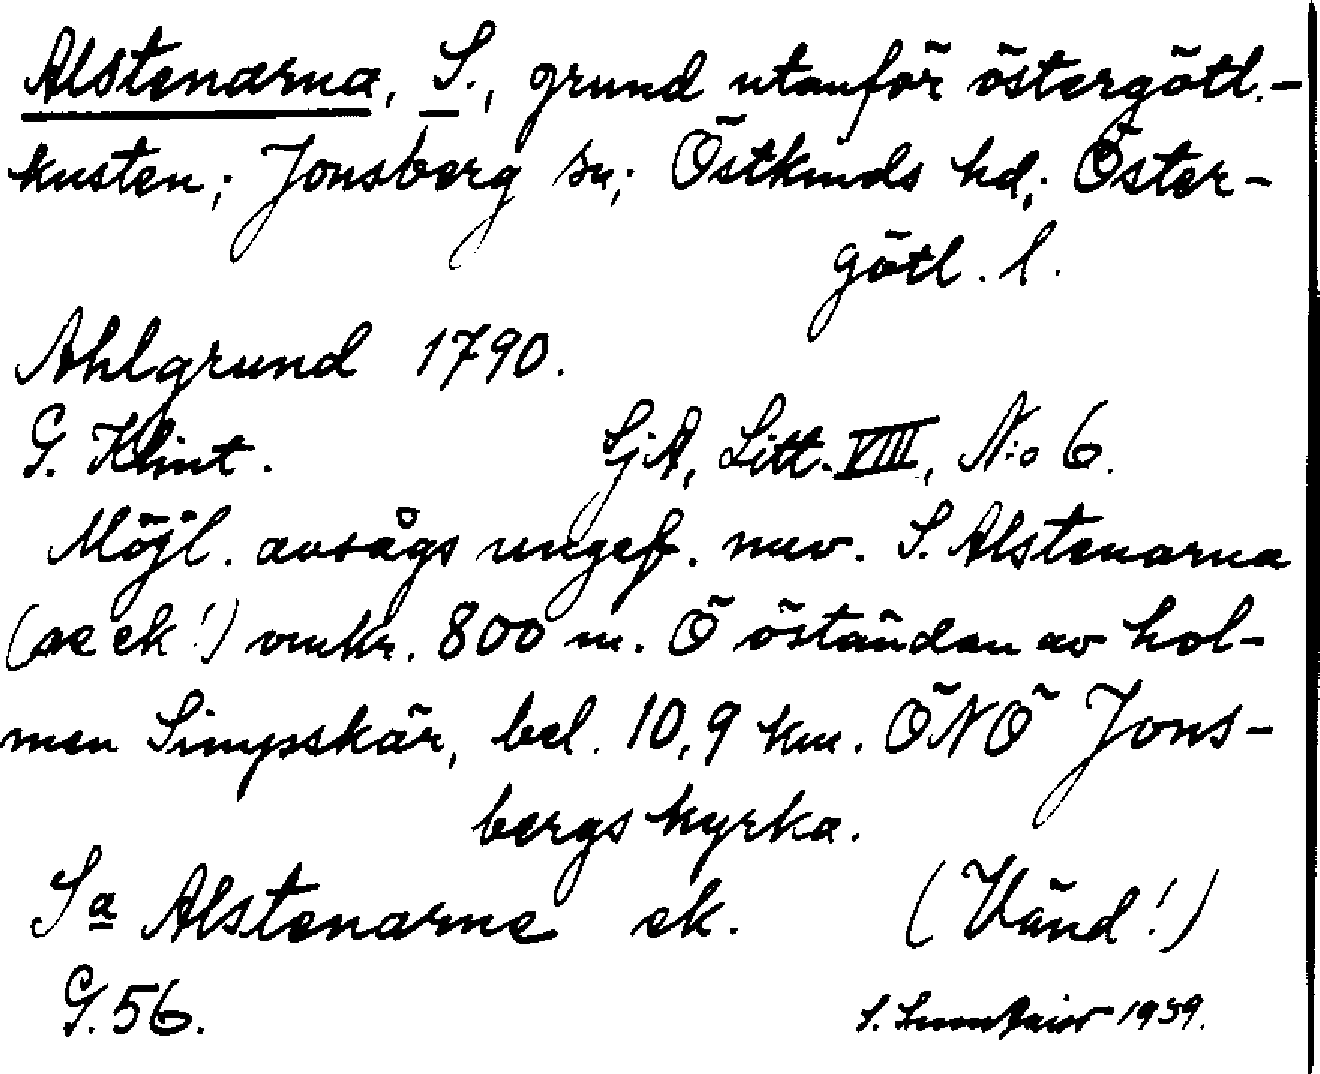 Alstenarna, S., grund utanför östergötl.-
kusten; Jonsberg sn; Östkinds hd; Öster-
götl. l.
Ahlgrund 1790.
G. Klint. SjA, Litt. VIII, N:o 6.
Möjl. avsågs ungef. nuv. S. Alstenarna
(se ek!) omkr. 800 m. Ö öständan av hol-
men Simpskär, bel. 10,9 km. ÖNÖ Jons-
bergs kyrka.
Sa Alstenarne ek. (Vänd!)
G. 56. S. 1939.